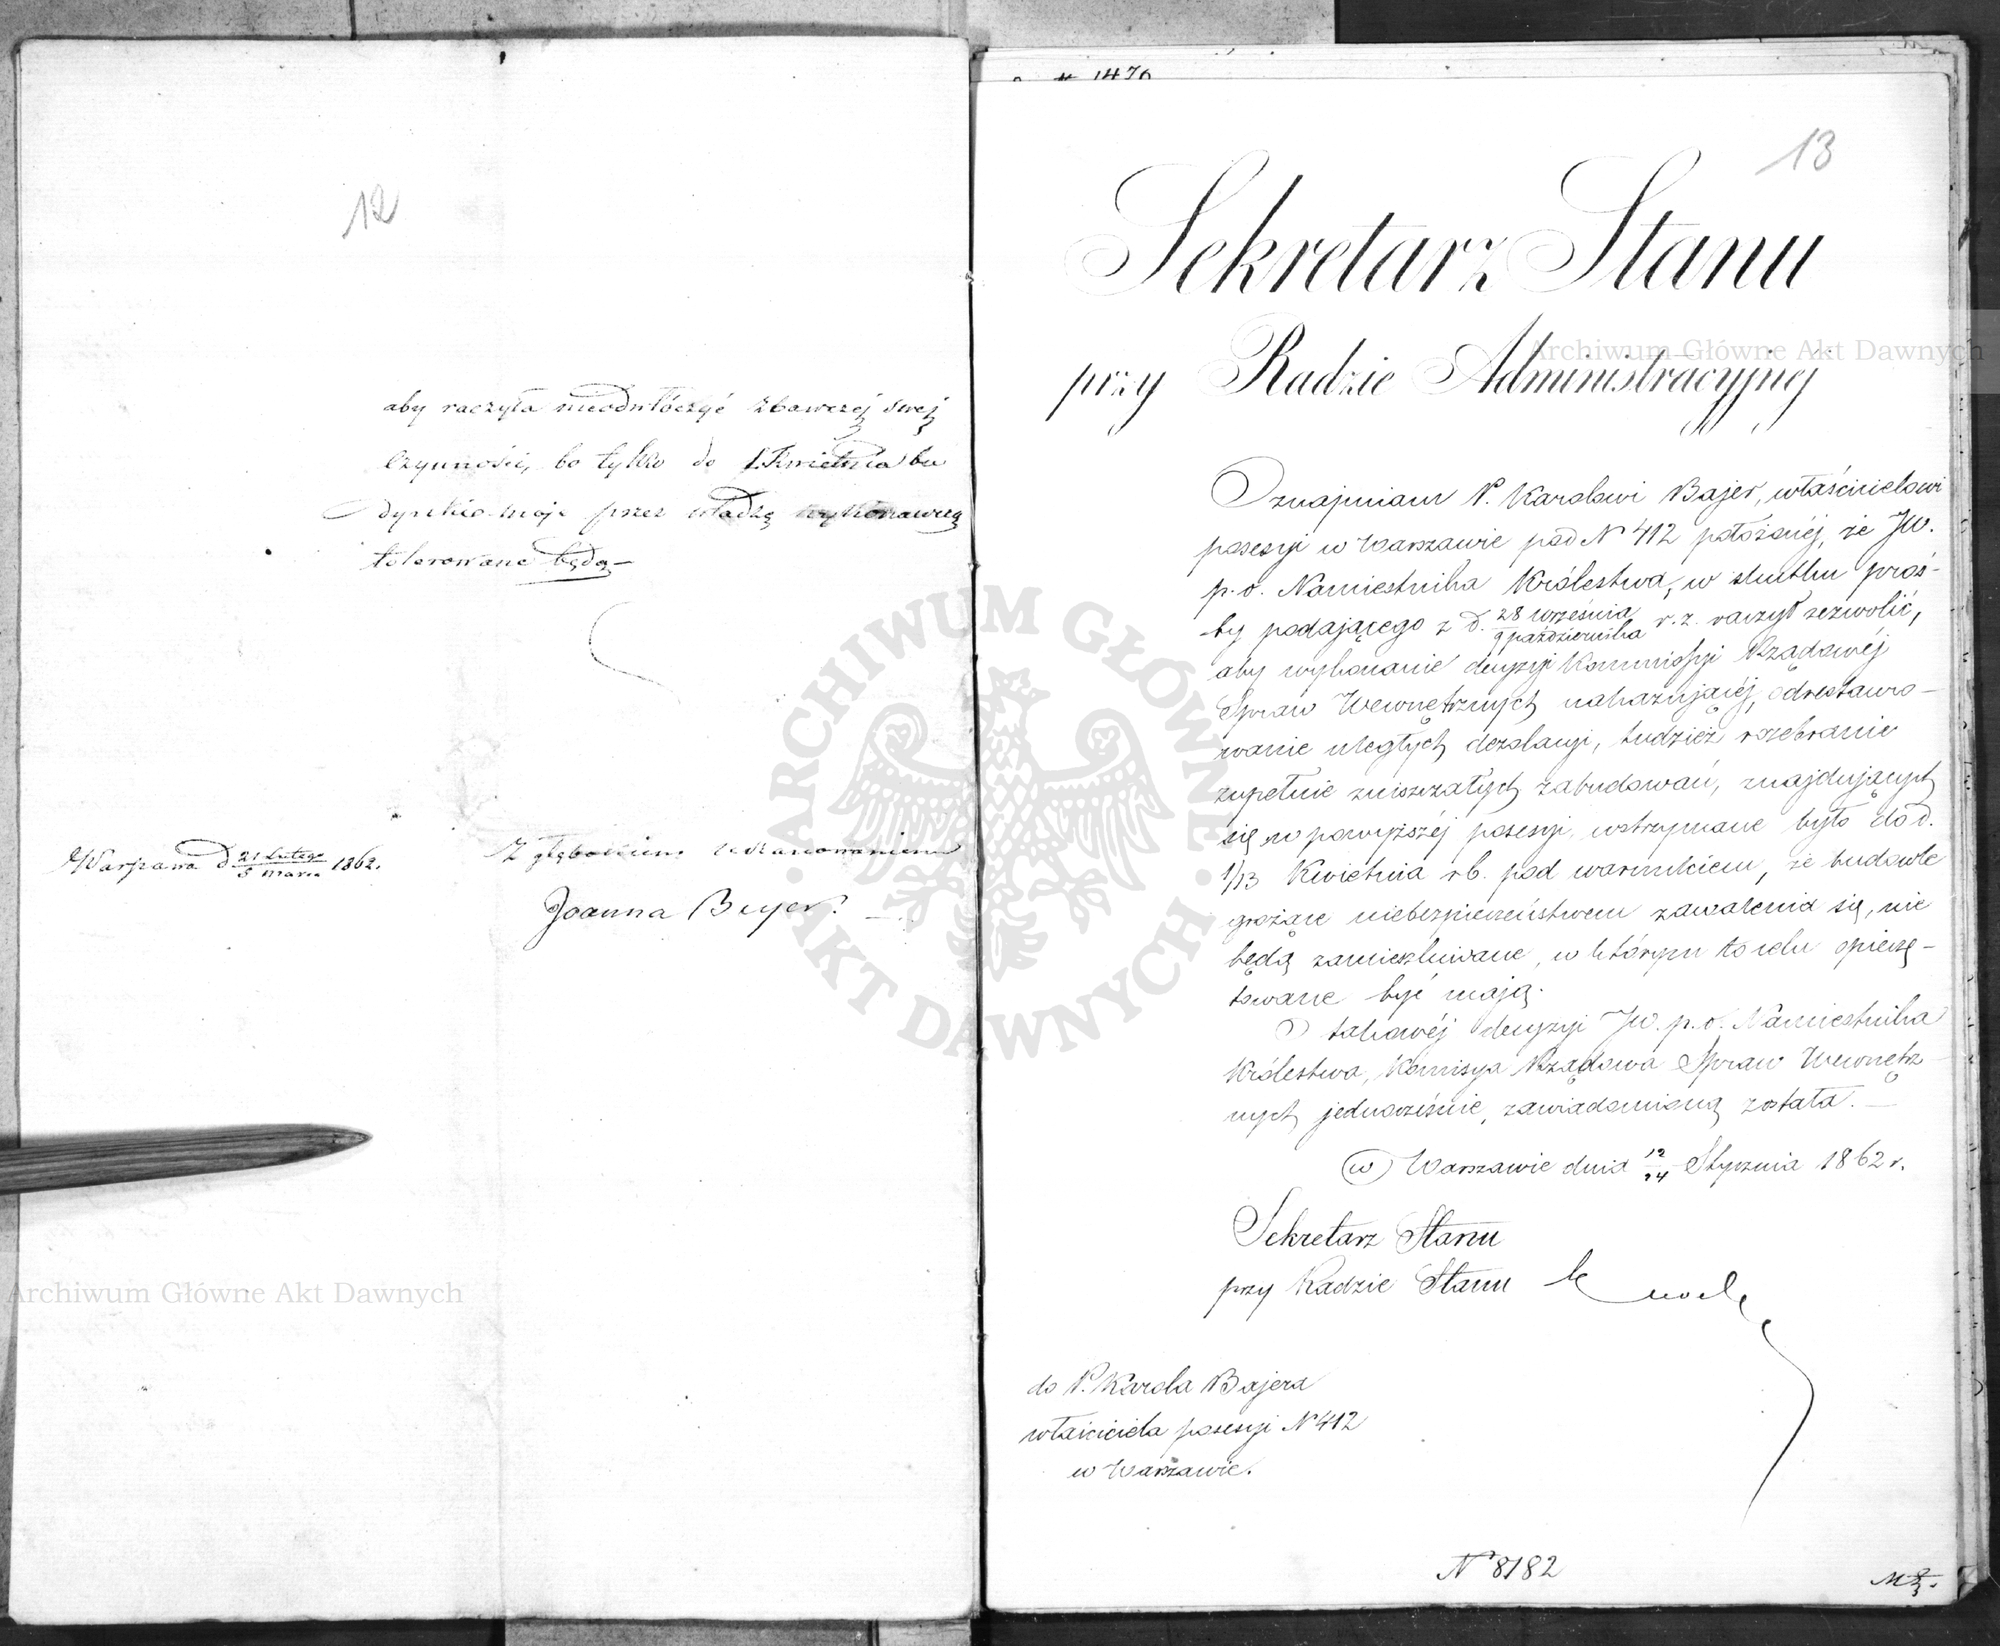 12
aby raczyła nieodwłóczyć zbawczej swej
czynności, bo tylko do 1. Kwietnia bu
dynki moje przez władzę wykonawczą
tolerowane będą —
Warszawa d. 21 Lutego / 5 Marca 1862.
Z głębokiem uszanowaniem
Joanna Beyer.
N 1476
13
Sekretarz Stanu
przy Radzie Administracyjnej
Oznajmiam P. Karolowi Bajer, właścicielowi
posesyi w Warszawie pod N 412 położonéj, że JW.
p. o. Namiestnika Królestwa, w skutku proś-
by podającego z d. 28 września / 9 października r. z. raczył zezwolić,
aby wykonanie decyzyi Kommissyi Rządowéj
Spraw Wewnętrznych nakazującéj, odrestauro-
wanie uległych dezolacyi, tudzież rozebranie
zupełnie zniszczałych zabudowań, znajdujących
się w powyższéj posesyi, wstrzymane było do d.
1/13 Kwietnia r b. pod warunkiem, że budowle
grożące niebezpieczeństwem zawalenia się, nie
będą zamieszkiwane, w którym to celu opieczę-
towane być mają.
O takowéj decyzyi JW. p. o. Namiestnika
Królestwa, Komisya Rządowa Spraw Wewnętrz-
nych jednocześnie, zawiadomioną została. —
w Warszawie dnia 12/24 Stycznia 1862 r.
Sekretarz Stanu
przy Radzie Stanu
do P. Karola Bajera
właściciela posesyi N 412
w Warszawie.
N 8182
Archiwum Główne Akt Dawnych
Archiwum Główne Akt Dawnych
ARCHIWUM GŁÓWNE AKT DAWNYCH